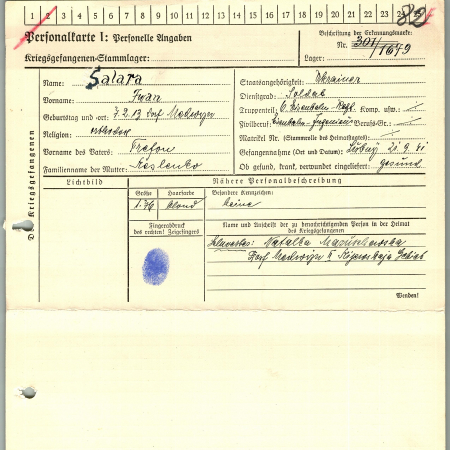 1 2 3 4 5 6 7 8 9 10 11 12 13 14 15 16 17 18 19 20 21 22 23 24 25
82
Personalkarte I: Personelle Angaben
Beschriftung der Erkennungsmarke:
Nr. 301/
Kriegsgefangenen-Stammlager:
Lager:
Des Kriegsgefangenen
Name: Salara
Vorname: Iwan
Geburtstag und -ort: 7.2.13 Dorf
Religion: orthodox
Vorname des Vaters:
Familienname der Mutter: Koslenko
Staatsangehörigkeit: Ukrainer
Dienstgrad: Soldat
Truppenteil: 6. Eisenbahn-Regt. Komp. usw.:
Zivilberuf: Eisenbahn-Ingenieur Berufs-Gr.:
Matrikel Nr. (Stammrolle des Heimatstaates): /
Gefangennahme (Ort und Datum): 41
Ob gesund, krank, verwundet eingeliefert: gesund
Lichtbild
Nähere Personalbeschreibung
Größe
Haarfarbe
Besondere Kennzeichen:
1.76
blond
keine
Fingerabdruck
des rechten! Zeigefingers
Name und Anschrift der zu benachrichtigenden Person in der Heimat
des Kriegsgefangenen
Schwester: Natalka
Dorf
Wenden!